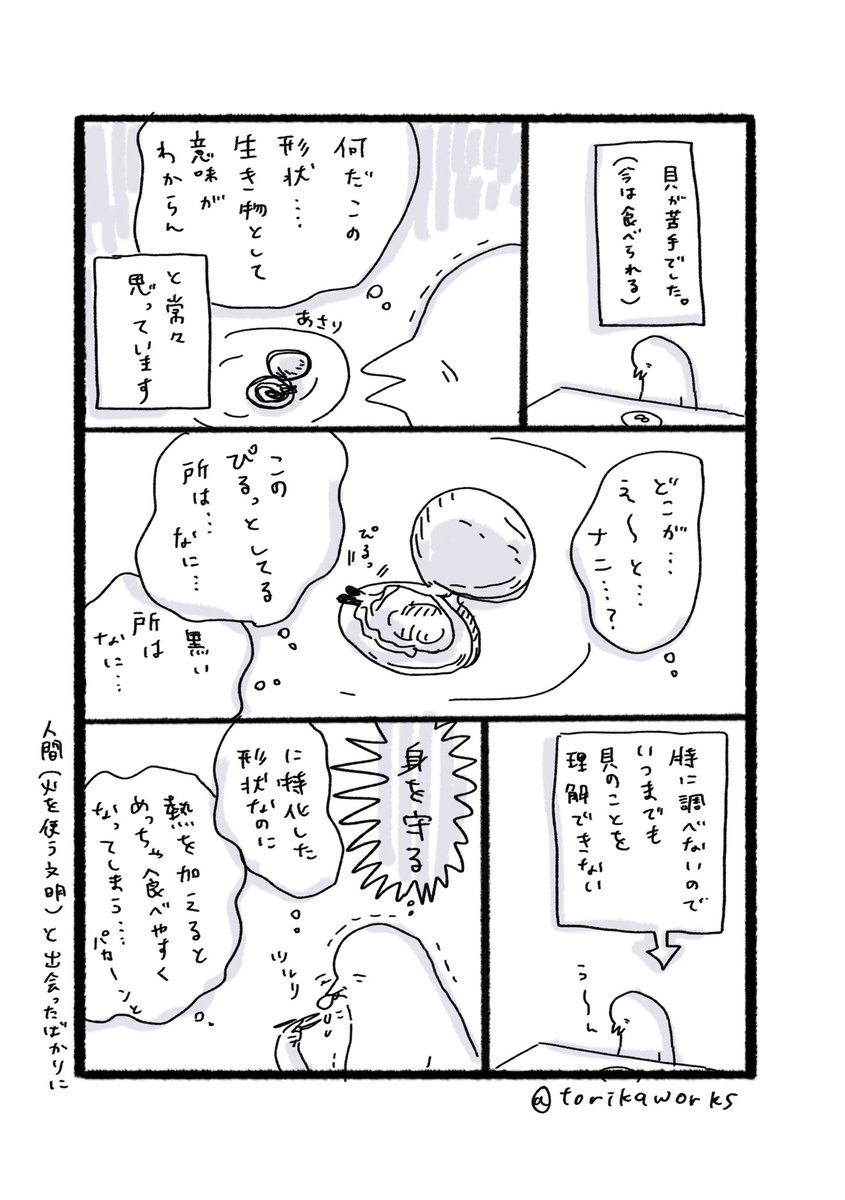 貝が苦手でした。
(今は食べられる)
何だこの
形状…
生き物として
意味が
わからん
あさり
と常々
思っています
どこが…
え〜と…
ナニ…?
ぴるっ
この
ぴるっとしてる
所は…
なに…
黒い
所は
なに…
特に調べないので
いつまでも
貝のことを
理解できない
う〜ん
身を守る
に特化した
形状なのに
ツルリ
熱を加えると
めっちゃ食べやすく
なってしまう……
パカーンと
人間(火を使う文明)と出会ったばかりに
@torikaworks